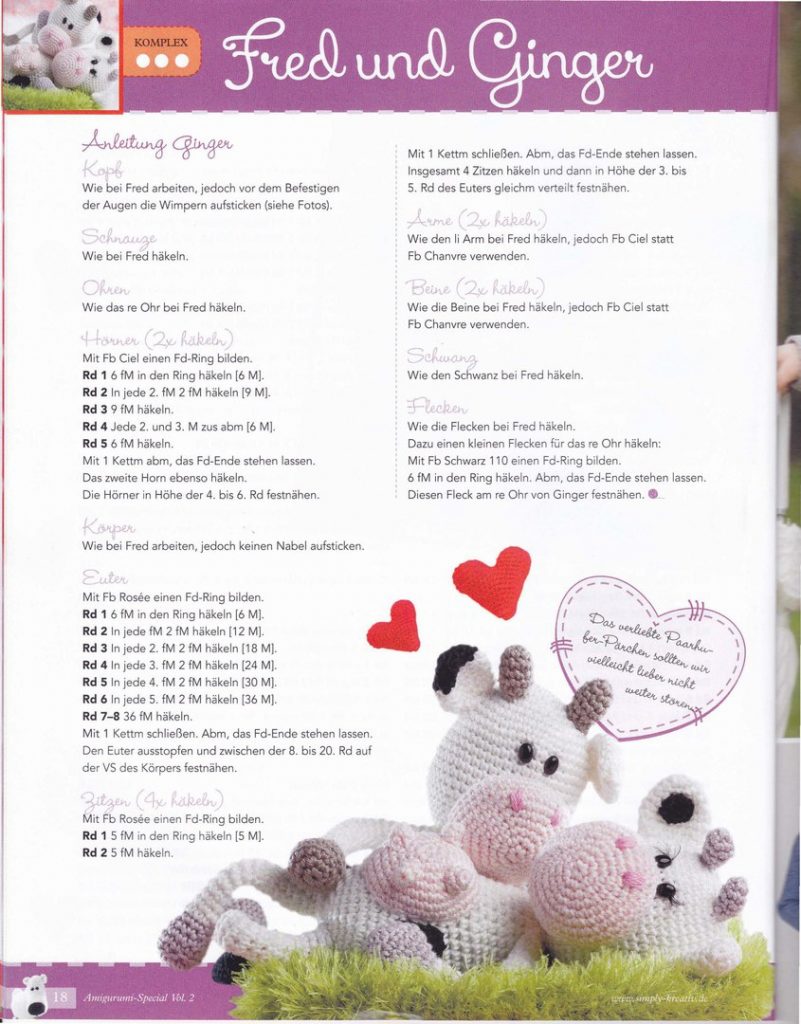 KOMPLEX
Fred und Ginger
Anleitung Ginger
Kopf
Wie bei Fred arbeiten, jedoch vor dem Befestigen
der Augen die Wimpern aufsticken (siehe Fotos).
Schnauze
Wie bei Fred häkeln.
Ohren
Wie das re Ohr bei Fred häkeln.
Hörner (2x häkeln)
Mit Fb Ciel einen Fd-Ring bilden.
Rd 1 6 fM in den Ring häkeln [6 M].
Rd 2 In jede 2. fM 2 fM häkeln [9 M].
Rd 3 9 fM häkeln.
Rd 4 Jede 2. und 3. M zus abm [6 M].
Rd 5 6 fM häkeln.
Mit 1 Kettm abm, das Fd-Ende stehen lassen.
Das zweite Horn ebenso häkeln.
Die Hörner in Höhe der 4. bis 6. Rd festnähen.
Körper
Wie bei Fred arbeiten, jedoch keinen Nabel aufsticken.
Euter
Mit Fb Rosée einen Fd-Ring bilden.
Rd 1 6 fM in den Ring häkeln [6 M].
Rd 2 In jede fM 2 fM häkeln [12 M].
Rd 3 In jede 2. fM 2 fM häkeln [18 M].
Rd 4 In jede 3. fM 2 fM häkeln [24 M].
Rd 5 In jede 4. fM 2 fM häkeln [30 M].
Rd 6 In jede 5. fM 2 fM häkeln [36 M].
Rd 7–8 36 fM häkeln.
Mit 1 Kettm schließen. Abm, das Fd-Ende stehen lassen.
Den Euter ausstopfen und zwischen der 8. bis 20. Rd auf
der VS des Körpers festnähen.
Zitzen (4x häkeln)
Mit Fb Rosée einen Fd-Ring bilden.
Rd 1 5 fM in den Ring häkeln [5 M].
Rd 2 5 fM häkeln.
Mit 1 Kettm schließen. Abm, das Fd-Ende stehen lassen.
Insgesamt 4 Zitzen häkeln und dann in Höhe der 3. bis
5. Rd des Euters gleichm verteilt festnähen.
Arme (2x häkeln)
Wie den li Arm bei Fred häkeln, jedoch Fb Ciel statt
Fb Chanvre verwenden.
Beine (2x häkeln)
Wie die Beine bei Fred häkeln, jedoch Fb Ciel statt
Fb Chanvre verwenden.
Schwanz
Wie den Schwanz bei Fred häkeln.
Flecken
Wie die Flecken bei Fred häkeln.
Dazu einen kleinen Flecken für das re Ohr häkeln:
Mit Fb Schwarz 110 einen Fd-Ring bilden.
6 fM in den Ring häkeln. Abm, das Fd-Ende stehen lassen.
Diesen Fleck am re Ohr von Ginger festnähen.
Das verliebte Paarhu-
fer-Pärchen sollten wir
vielleicht lieber nicht
weiter stören...
18 Amigurumi-Special Vol. 2
www.simply-kreativ.de